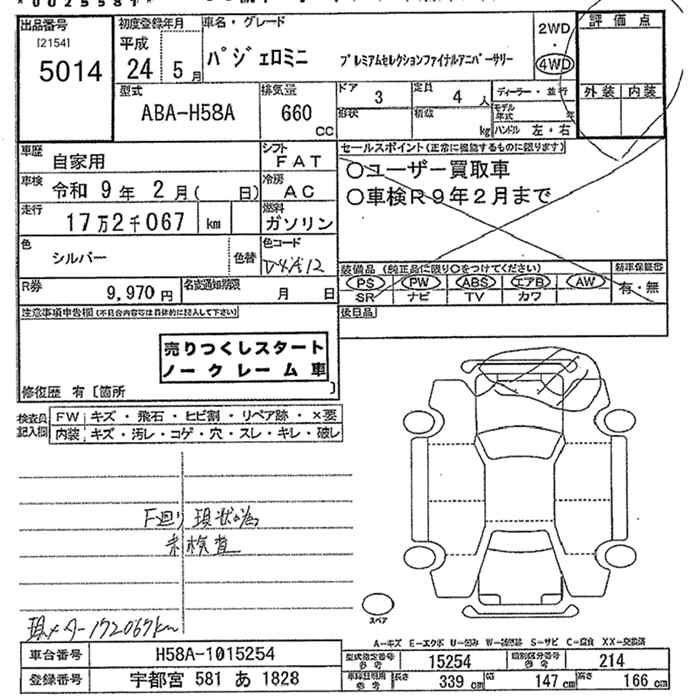 出品番号
[2154]
5014
初度登録年月
平成
24 年 5 月
車名・グレード
パジェロミニ プレミアムセレクションファイナルアニバーサリー
2WD
・
4WD
評価点
外装 内装
型式
ABA-H58A
排気量
660
CC
ドア
3
定員
4 人
形状
積載
kg
ディーラー・並行
モデル年式 年
ハンドル 左・右
車歴
自家用
シフト
FAT
車検
令和 9 年 2 月( 日)
冷房
AC
走行
17万2千067 km
燃料
ガソリン
色
シルバー
色替
色コード
R券
9,970 円
名変通知期限
月 日
セールスポイント(正常に機能するものに限ります)
〇ユーザー買取車
〇車検R9年2月まで
装備品(純正品に限り〇をつけてください)
PS PW ABS エアB AW
SR ナビ TV カワ
新車保証書
有・無
後日品
注意事項申告欄(不具合内容等は具体的に記入して下さい)
売りつくしスタート
ノークレーム車
修復歴 有〔箇所 〕
検査員記入欄
FW キズ・飛石・ヒビ割・リペア跡・×要
内装 キズ・汚レ・コゲ・穴・スレ・キレ・破レ
F廻り現状の為
未検査
現メーター172067km
スペア
A-キズ E-エクボ U-凹ミ W-補修跡 S-サビ C-腐食 XX-交換済
車台番号 H58A-1015254
登録番号 宇都宮 581 あ 1828
型式指定番号 参考 15254
類別区分番号 参考 214
車検証明用 参考
長さ 339 cm
幅 147 cm
高さ 166 cm